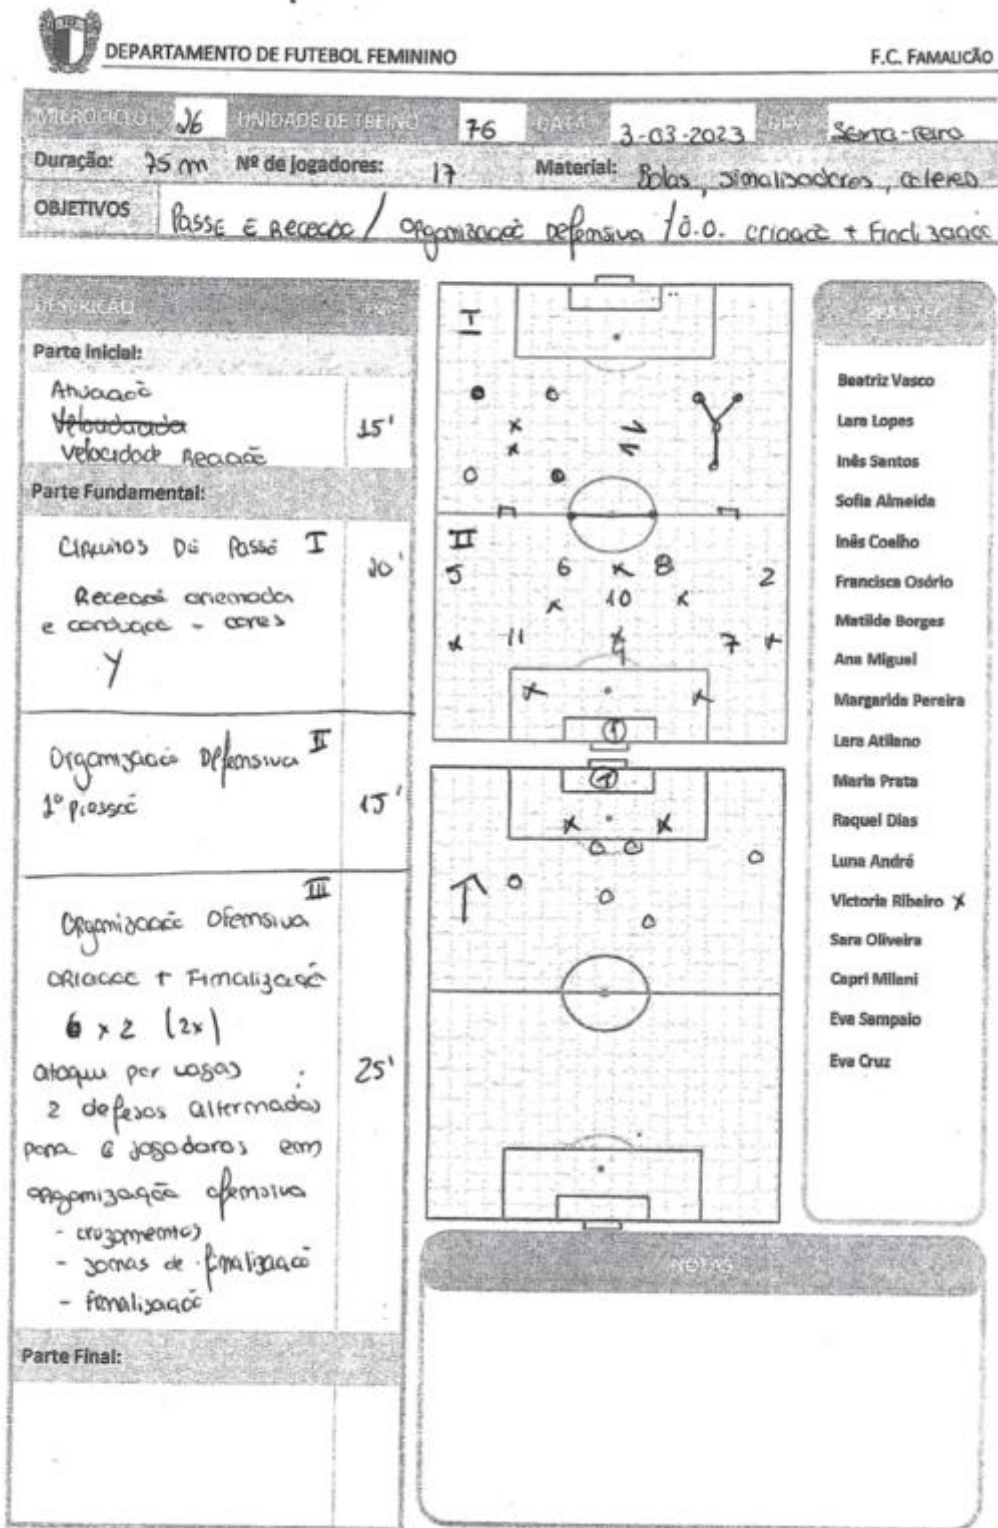 DEPARTAMENTO DE FUTEBOL FEMININO
F.C. FAMALICÃO
MICROCICLO 26 UNIDADE DE TREINO 76 DATA 3-03-2023 DIA Sexta-feira
Duração: 75 m Nº de jogadores: 17 Material: Bolas, sinalisadores, coletes
OBJETIVOS Passe e Receção / Organização Defensiva / O.O. criação + Finalização
DESCRIÇÃO
Parte inicial:
Ativação
Velocidade Reação
15'
Parte Fundamental:
Circuitos De Passe I
Receção orientada
e condução - cores
Y
20'
Organização Defensiva II
1ª pressão
15'
III
Organização Ofensiva
criação + Finalização
6 x 2 (2x)
ataque por vagas :
2 defesas alternadas
para 6 jogadoras em
organização ofensiva
- cruzamentos
- zonas de finalização
- finalização
25'
Parte Final:
I
II
5 6 x 8 2
x 10 x
x 11 x 7 x
x x
1
1
x x
Beatriz Vasco
Lara Lopes
Inês Santos
Sofia Almeida
Inês Coelho
Francisca Osório
Matilde Borges
Ana Miguel
Margarida Pereira
Lara Atilano
Maria Prata
Raquel Dias
Luna André
Victoria Ribeiro x
Sara Oliveira
Capri Milani
Eva Sampaio
Eva Cruz
NOTAS